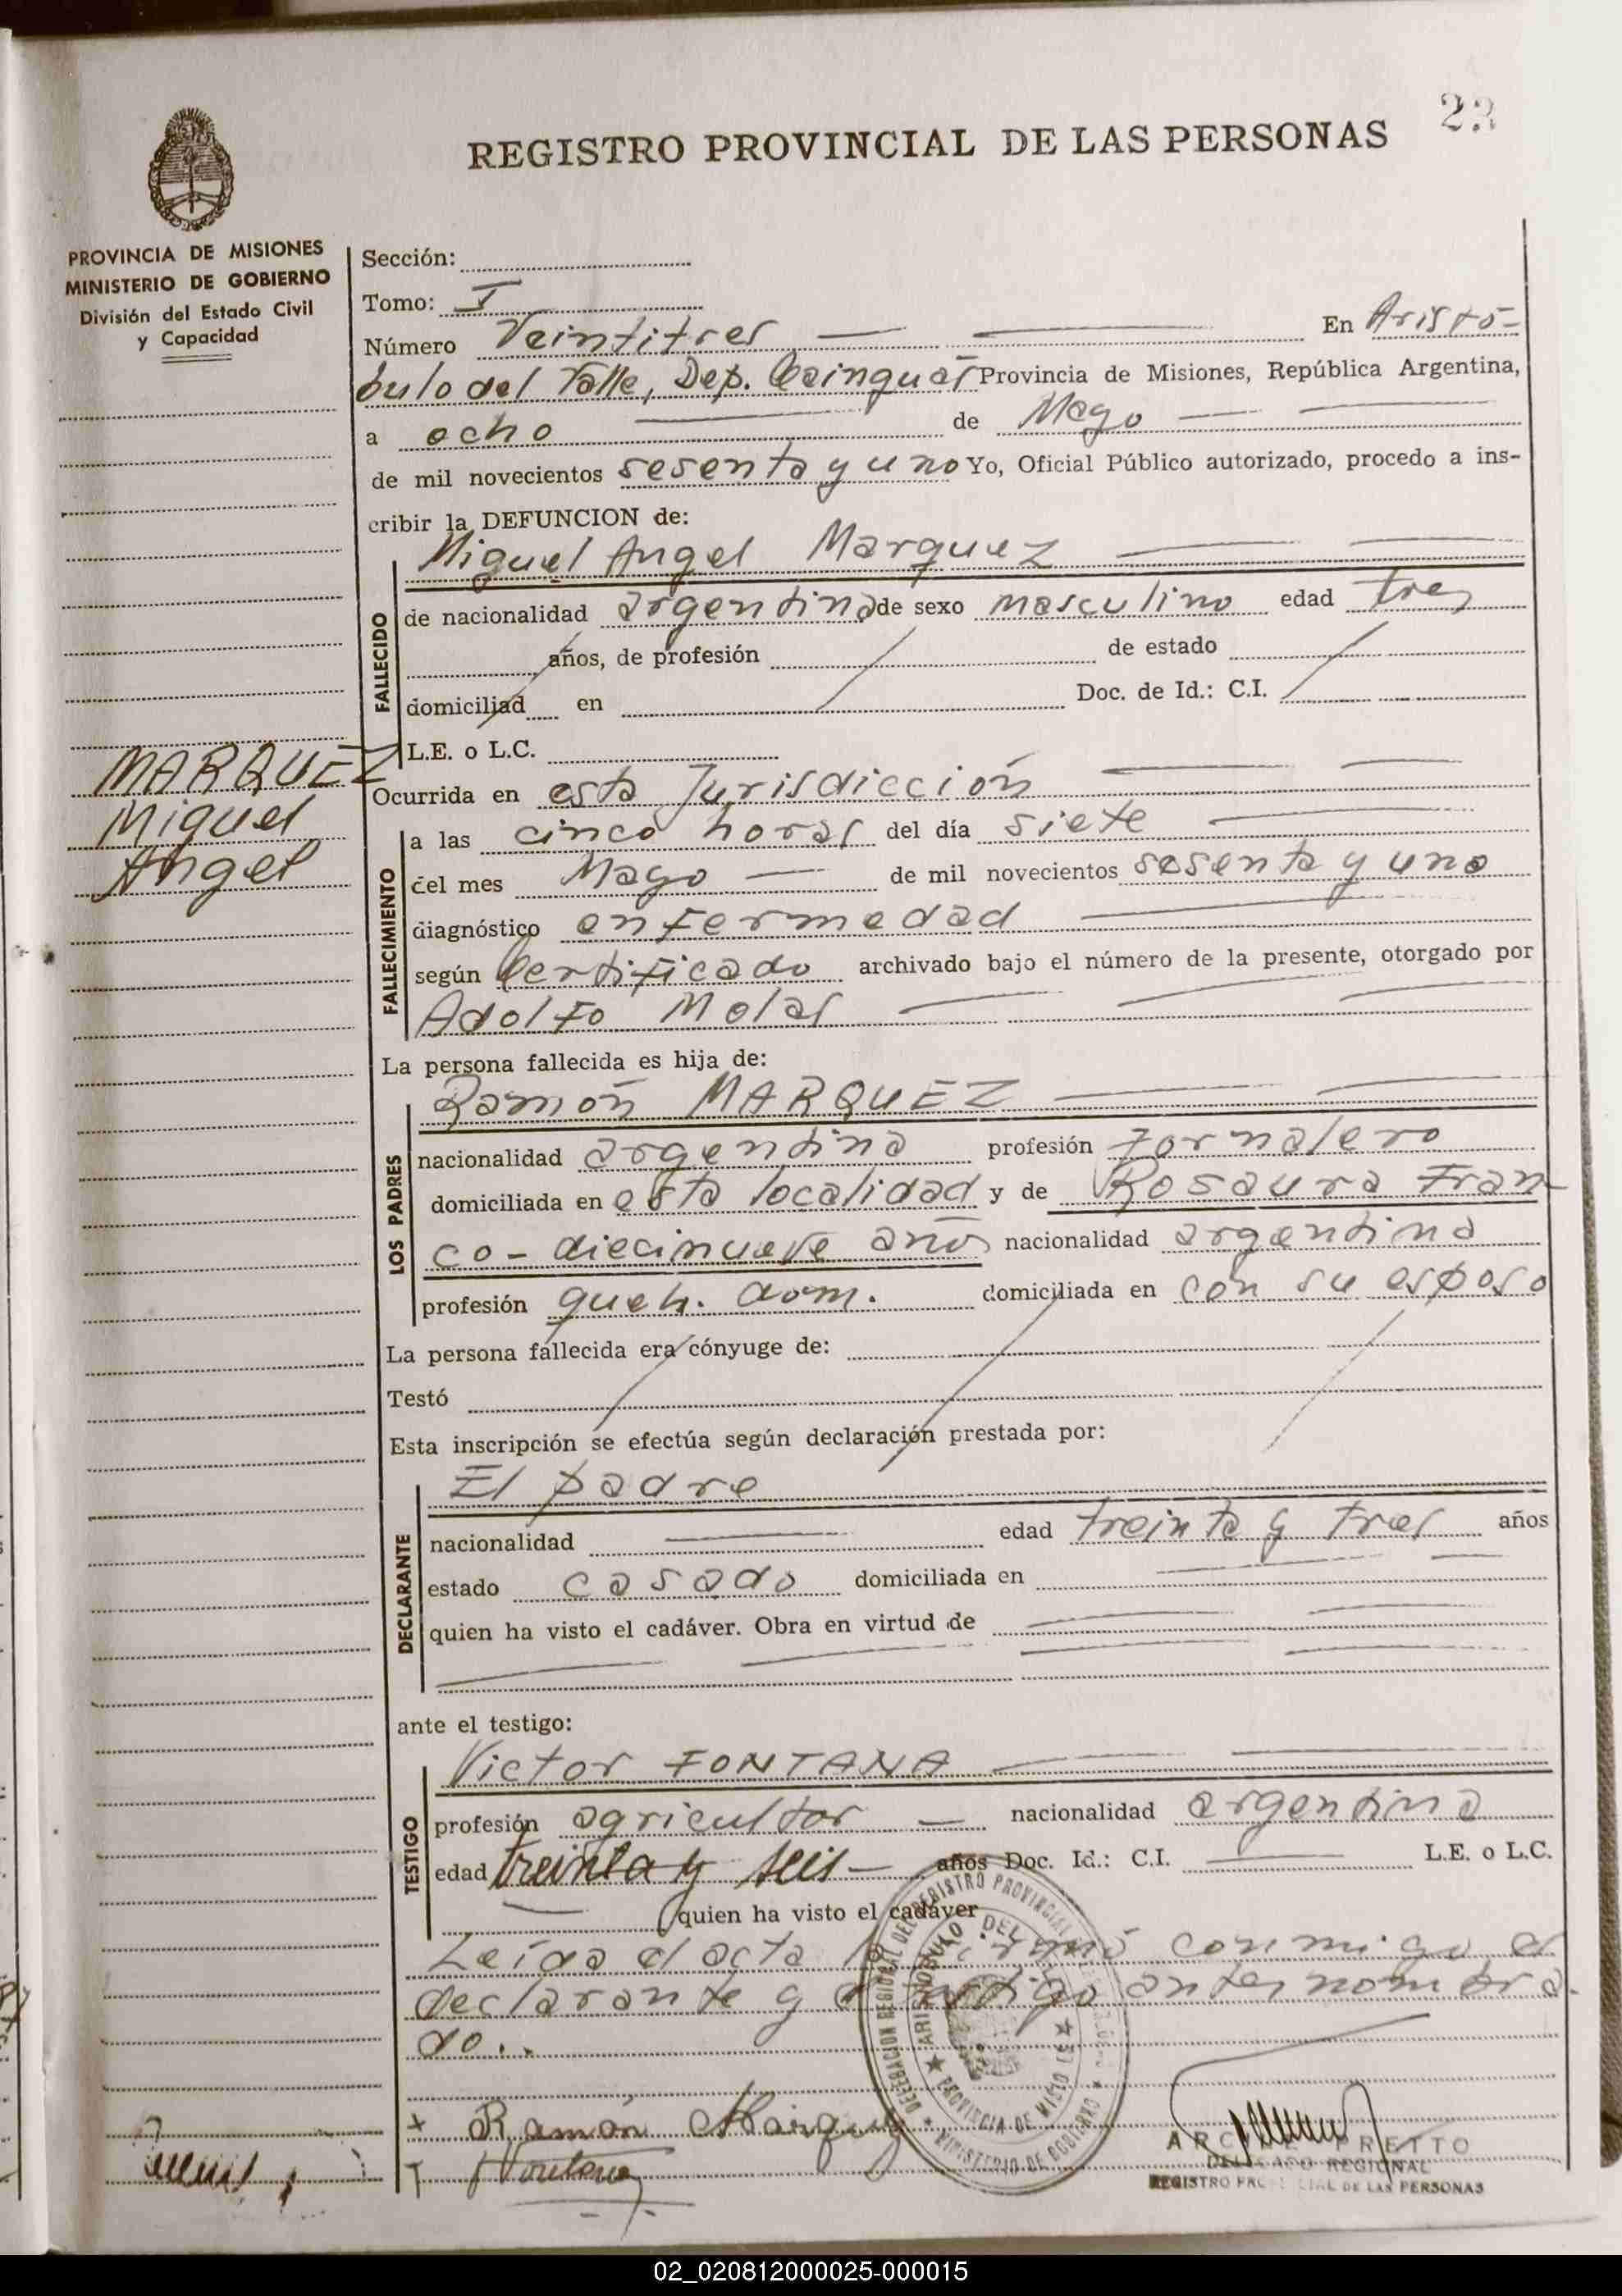 23
REGISTRO PROVINCIAL DE LAS PERSONAS
PROVINCIA DE MISIONES
MINISTERIO DE GOBIERNO
División del Estado Civil
y Capacidad
MARQUEZ
Miguel
Angel
Sección:
Tomo: I
Número Veintitres En Aristó-
bulo del Valle, Dep. Cainguás Provincia de Misiones, República Argentina,
a ocho de Mayo
de mil novecientos sesenta y uno Yo, Oficial Público autorizado, procedo a ins-
cribir la DEFUNCION de:
Miguel Angel Marquez
FALLECIDO
de nacionalidad argentina de sexo masculino edad tres
años, de profesión de estado
domiciliad en Doc. de Id.: C.I.
L.E. o L.C.
Ocurrida en esta Jurisdicción
FALLECIMIENTO
a las cinco horas del día siete
del mes Mayo de mil novecientos sesenta y uno
diagnóstico enfermedad
según Certificado archivado bajo el número de la presente, otorgado por
Adolfo Molas
La persona fallecida es hija de:
Ramón MARQUEZ
LOS PADRES
nacionalidad argentina profesión Jornalero
domiciliada en esta localidad y de Rosaura Fran-
co - diecinueve años nacionalidad argentina
profesión queh. dom. domiciliada en con su esposo
La persona fallecida era cónyuge de:
Testó
Esta inscripción se efectúa según declaración prestada por:
El padre
DECLARANTE
nacionalidad edad treinta y tres años
estado casado domiciliada en
quien ha visto el cadáver. Obra en virtud de
ante el testigo:
Victor FONTANA
TESTIGO
profesión agricultor nacionalidad argentina
edad treinta y seis años Doc. Id.: C.I. L.E. o L.C.
quien ha visto el cadáver
Leída el acta la firmó conmigo el
declarante y el testigo antes nombra-
do..
DELEGACION REGIONAL DEL REGISTRO PROVINCIAL
ARISTOBULO DEL
PROVINCIA DE MISIONES
MINISTERIO DE GOBIERNO
+ Ramón Marquez
T Fontana
PRETTO
DELEGADO REGIONAL
REGISTRO PROVINCIAL DE LAS PERSONAS
02_020812000025-000015